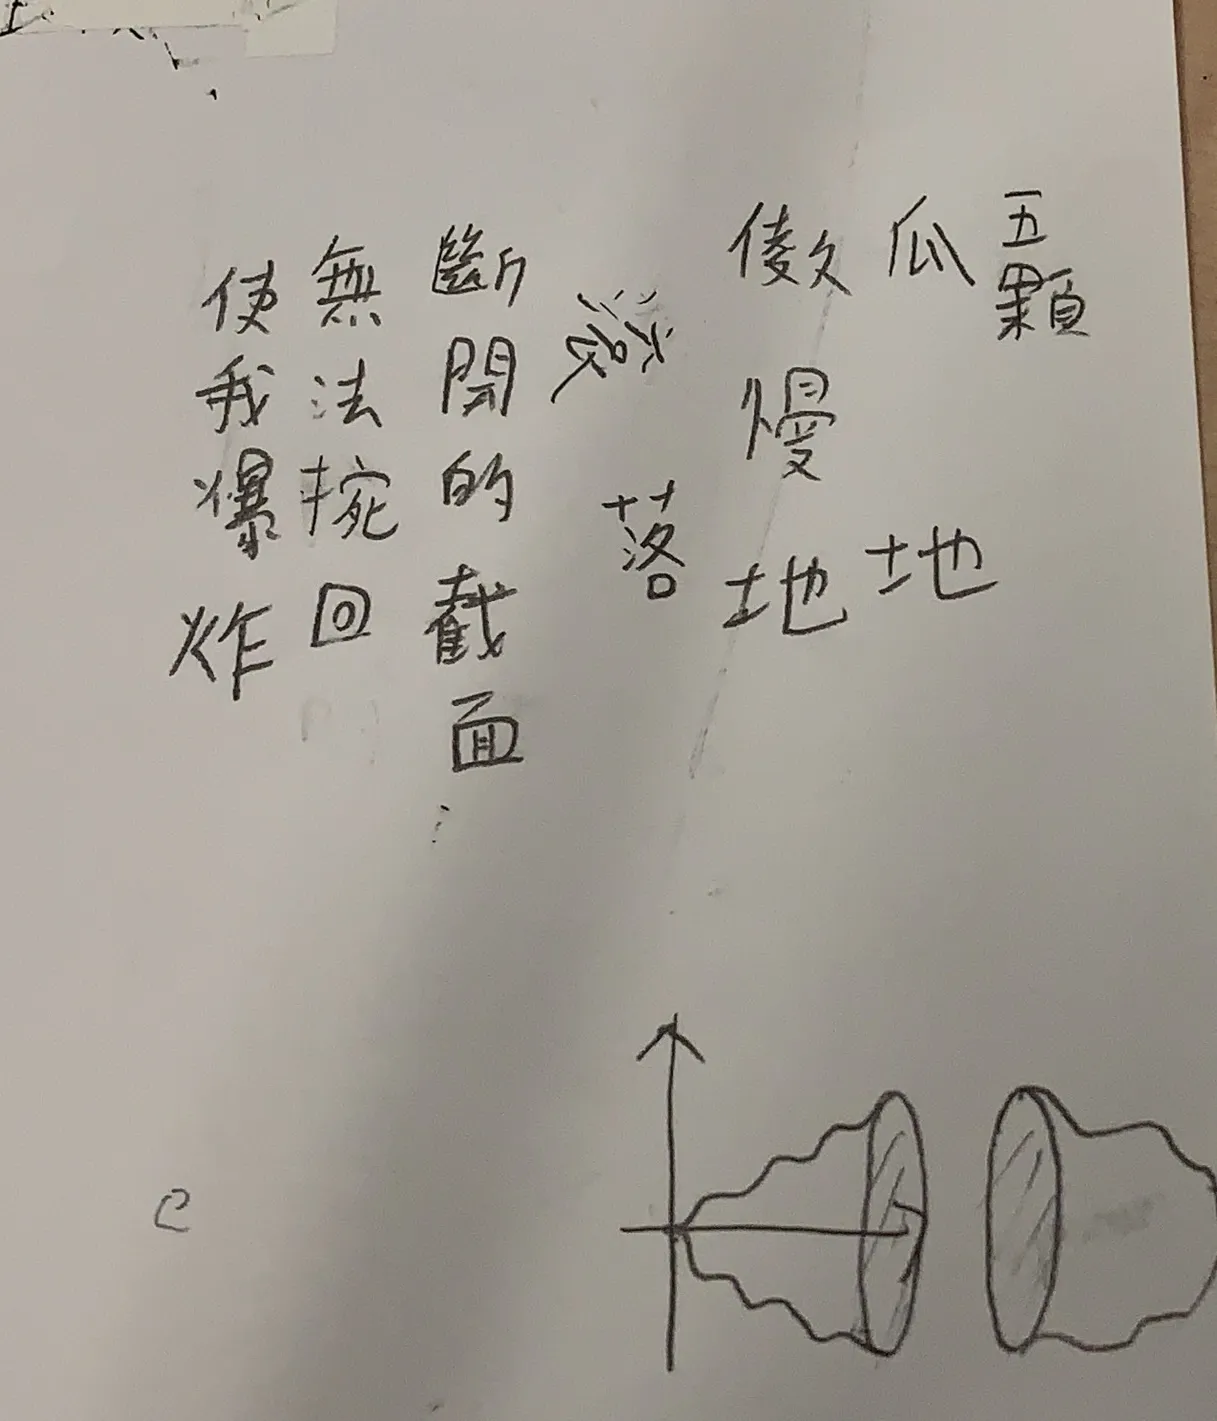 五顆
瓜 地
傲慢地
發 落
斷開的截面…
無法挽回
使我爆炸